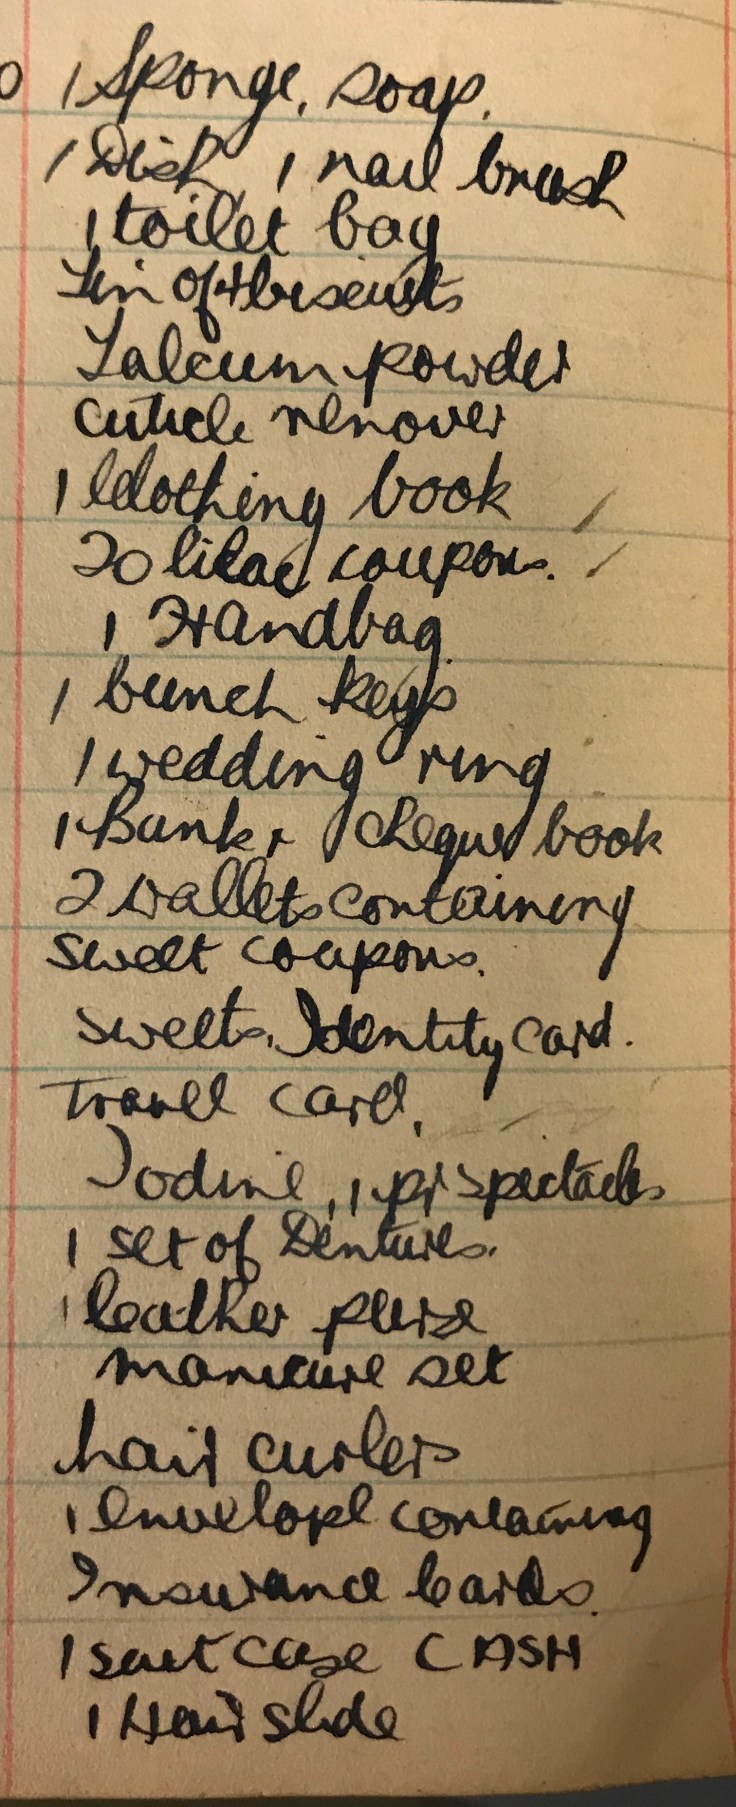 1 Sponge, soap.
1 Dish, 1 nail brush
1 toilet bag
Tin of biscuits
Talcum powder
cuticle remover
1 Clothing book
20 lilac coupons.
1 Handbag
1 bunch keys
1 wedding ring
1 Bank + cheque book
2 wallets containing
sweet coupons.
sweets. Identity card.
Travel card.
Iodine, 1 pr spectacles
1 set of Dentures.
1 leather purse
manicure set
hair curlers
1 envelope containing
Insurance cards.
1 suit case CASH
1 Hair slide